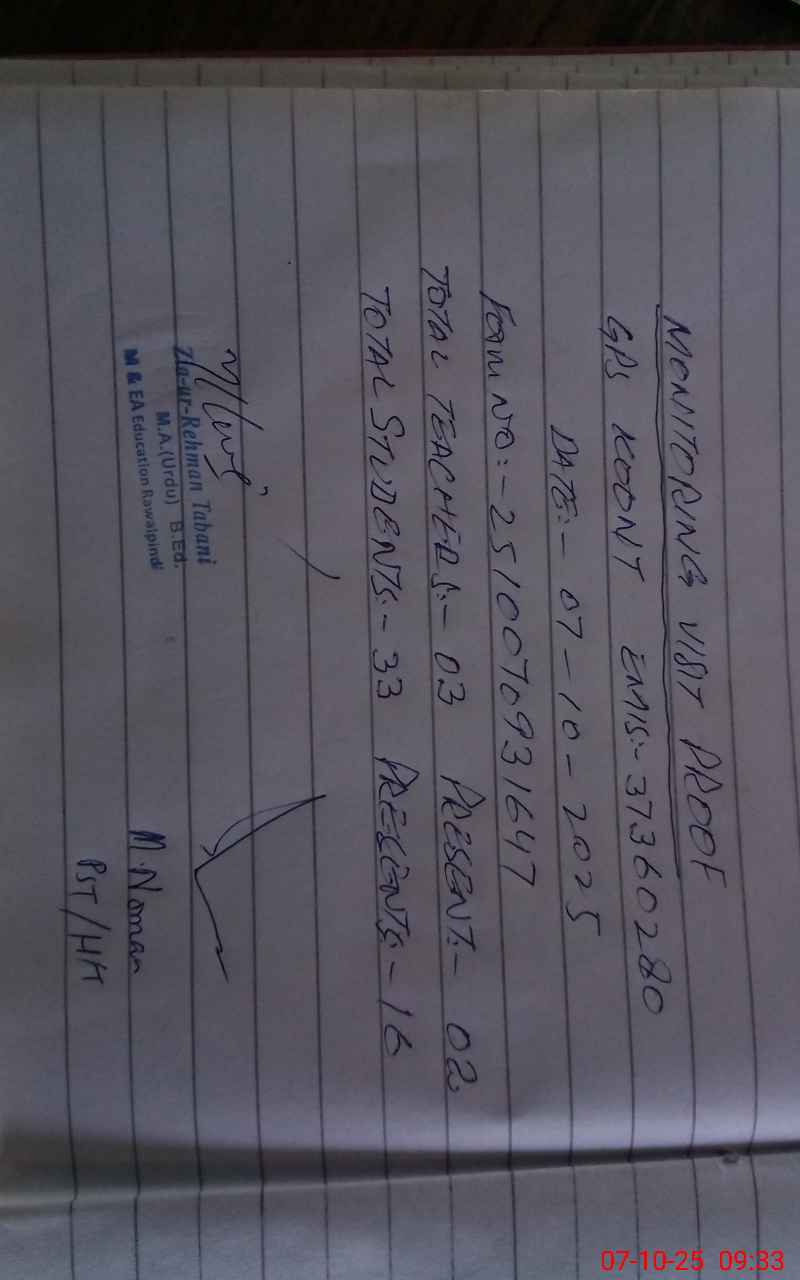 MONITORING VISIT PROOF
GPS KOONT EMIS:- 37360280
DATE:- 07-10-2025
FORM NO:- 251007093 1647
TOTAL TEACHERS:- 03 PRESENT:- 02
TOTAL STUDENTS:- 33 PRESENTS:- 16
Zia-ur-Rehman Tabani
M.A.(Urdu) B.Ed.
M & EA Education Rawalpindi
M. Noman
PST/HT
07-10-25 09:33